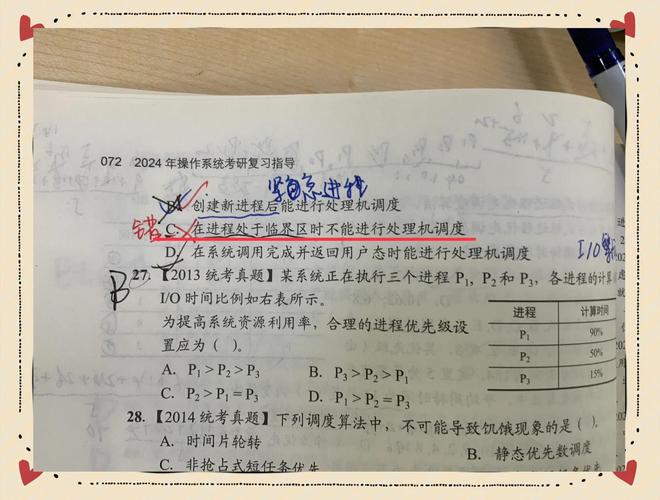 072 2024年操作系统考研复习指导
紧急进程
B. 创建新进程后能进行处理机调度
错 C. 在进程处于临界区时不能进行处理机调度
D. 在系统调用完成并返回用户态时能进行处理机调度
I/O
B 27.【2013统考真题】某系统正在执行三个进程 P₁, P₂ 和 P₃, 各进程的计算
I/O 时间比例如右表所示。
进程 计算时间
P₁ 90%
P₂ 50%
P₃ 15%
为提高系统资源利用率，合理的进程优先级设
置应为（ ）。
A. P₁ > P₂ > P₃ B. P₃ > P₂ > P₁
C. P₂ > P₁ = P₃ D. P₁ > P₂ = P₃
28.【2014统考真题】下列调度算法中，不可能导致饥饿现象的是（ ）。
A. 时间片轮转 B. 静态优先数调度
C. 非抢占式短任务优先